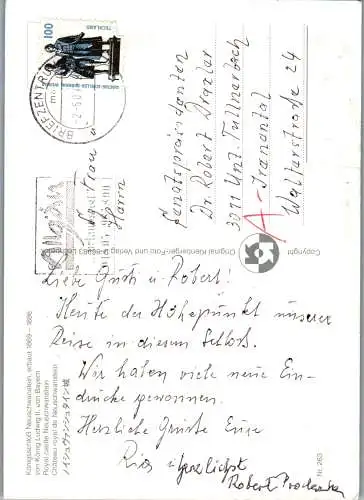 Liebe Gusti u. Robert!
Heute der Höhepunkt unserer
Reise in diesem Schloß.
Wir haben viele neue Ein-
drücke gewonnen.
Herzliche Grüße Eure
herzlichst
Robert
Frau
Herrn
Senatspräsidenten
Dr. Robert
3011 Unt. Tullnerbach
A- Irenental
Walterstraße 24
100
DEUTSCHLAND
GOETHE-SCHILLER-DENKMAL WEIMAR
BRIEFZENTRUM
Königsschloß Neuschwanstein, erbaut 1869 – 1886
von König Ludwig II. von Bayern
Royal castle Neuschwanstein
Château royal de Neuschwanstein
ノイシュヴァンシュタイン城
Copyright
Original Kienberger-Foto und Verlag
Nr. 263